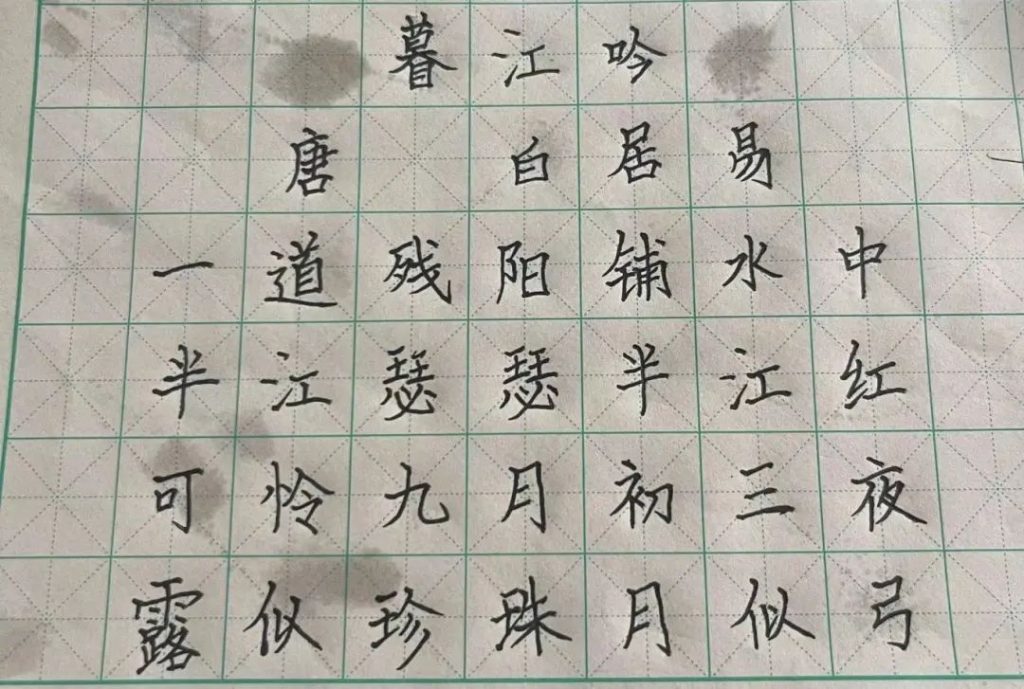 暮江吟
唐 白居易
一道残阳铺水中
半江瑟瑟半江红
可怜九月初三夜
露似珍珠月似弓